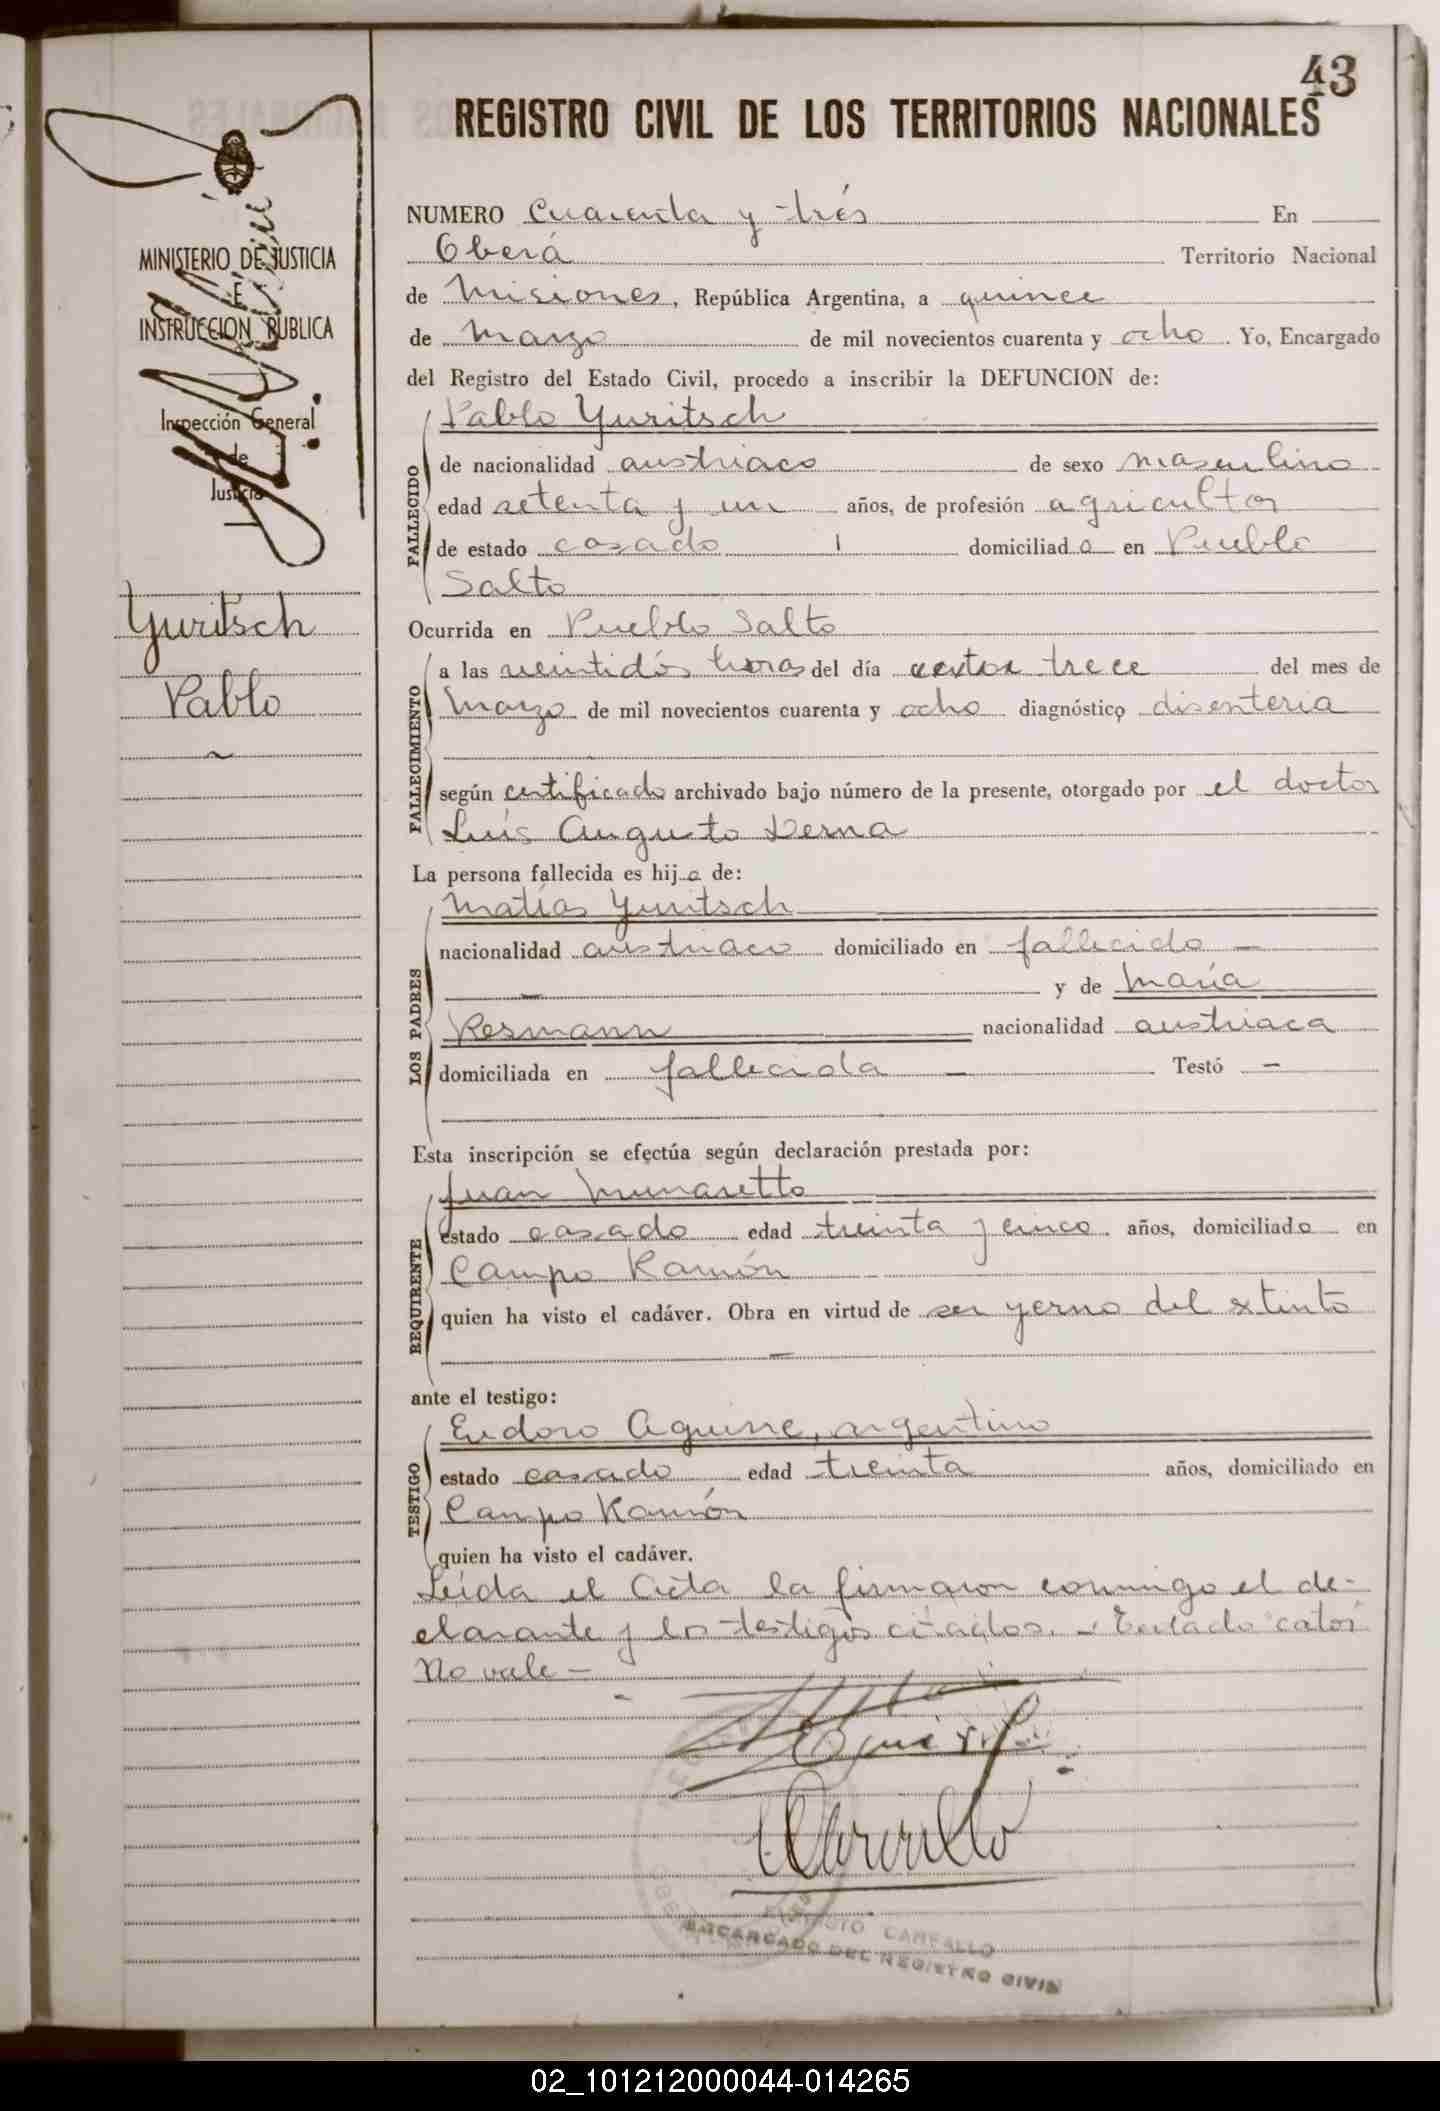 43
REGISTRO CIVIL DE LOS TERRITORIOS NACIONALES
MINISTERIO DE JUSTICIA
E
INSTRUCCION PUBLICA
Inspección General
de
Justicia
Yuritsch
Pablo
NUMERO Cuarenta y trés En
Oberá Territorio Nacional
de Misiones, República Argentina, a quince
de Marzo de mil novecientos cuarenta y ocho. Yo, Encargado
del Registro del Estado Civil, procedo a inscribir la DEFUNCION de:
Pablo Yuritsch
FALLECIDO
de nacionalidad austriaco de sexo masculino
edad setenta y un años, de profesión agricultor
de estado casado domiciliado en Pueblo
Salto
Ocurrida en Pueblo Salto
FALLECIMIENTO
a las veintidós horas del día trece del mes de
Marzo de mil novecientos cuarenta y ocho diagnóstico disenteria
según certificado archivado bajo número de la presente, otorgado por el doctor
Luis Augusto Derna
La persona fallecida es hijo de:
LOS PADRES
Matías Yuritsch
nacionalidad austriaco domiciliado en fallecido —
— y de María
Resmann nacionalidad austriaca
domiciliada en fallecida — Testó —
Esta inscripción se efectúa según declaración prestada por:
REQUIRENTE
Juan Munaretto
estado casado edad treinta y cinco años, domiciliado en
Campo Ramón
quien ha visto el cadáver. Obra en virtud de ser yerno del extinto
—
ante el testigo:
TESTIGO
Eudoro Aguirre, argentino
estado casado edad treinta años, domiciliado en
Campo Ramón
quien ha visto el cadáver.
Leída el Acta la firmaron conmigo el de-
clarante y los testigos citados. — Testado "cator"
No vale —
CARBALLO
ENCARGADO DEL REGISTRO CIVIL
02_101212000044-014265